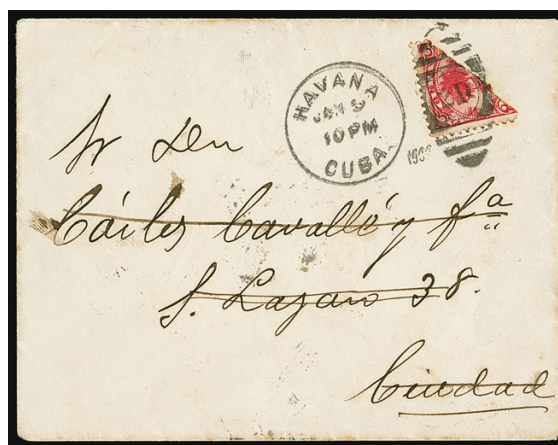 HAVANA
JAN 5
10 PM
CUBA.
Sr Don
Cárlos Cavalló y fa
S. Lazaro 38.
Ciudad